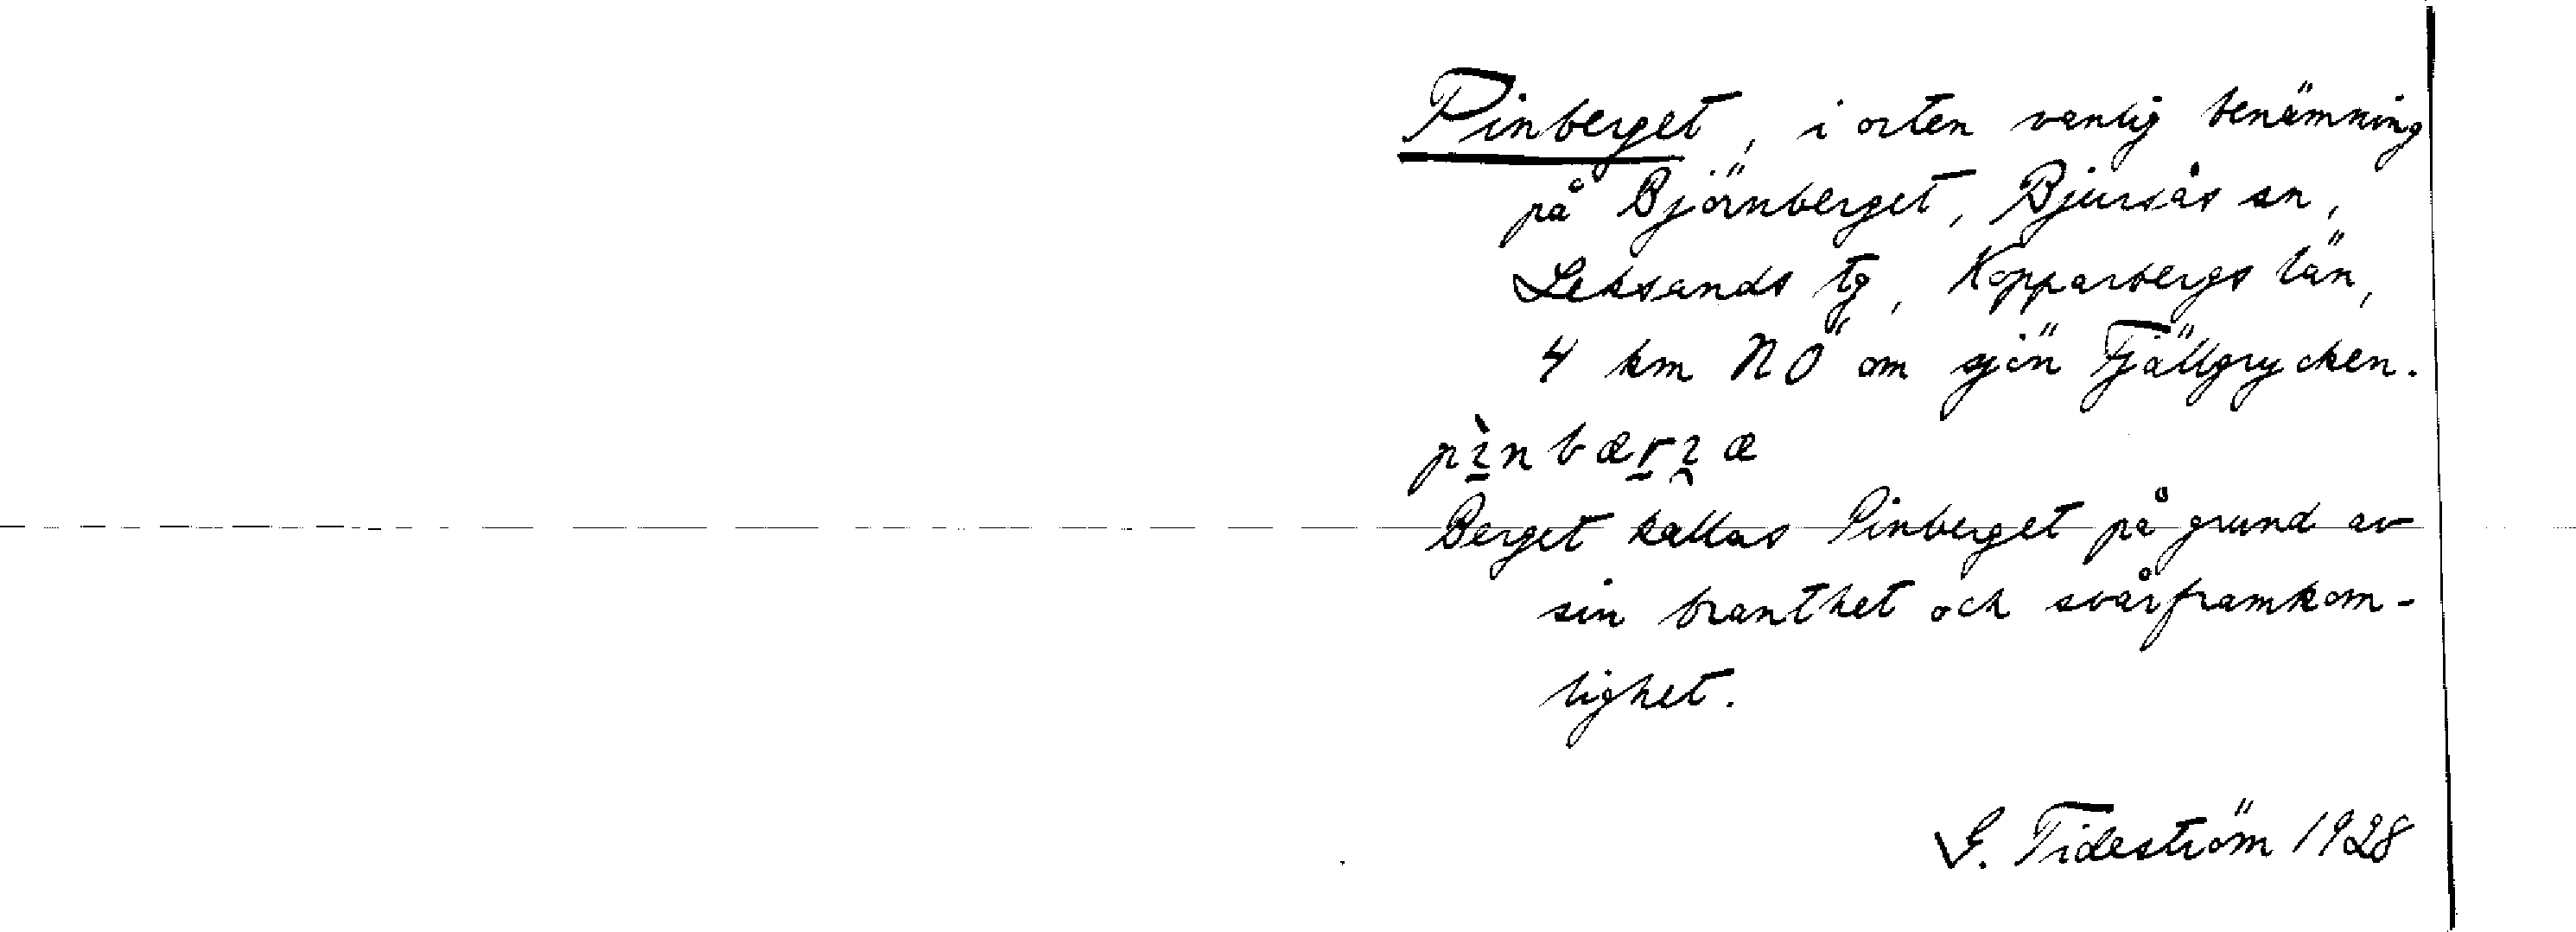 Pinberget, i orten vanlig benämning
på Björnberget, Bjursås sn,
Leksands tg, Kopparbergs län,
4 km NÖ om sjön Fjällgrycken.
Berget kallas Pinberget på grund av
sin branthet och svårframkom-
lighet.
G. Tideström 1928